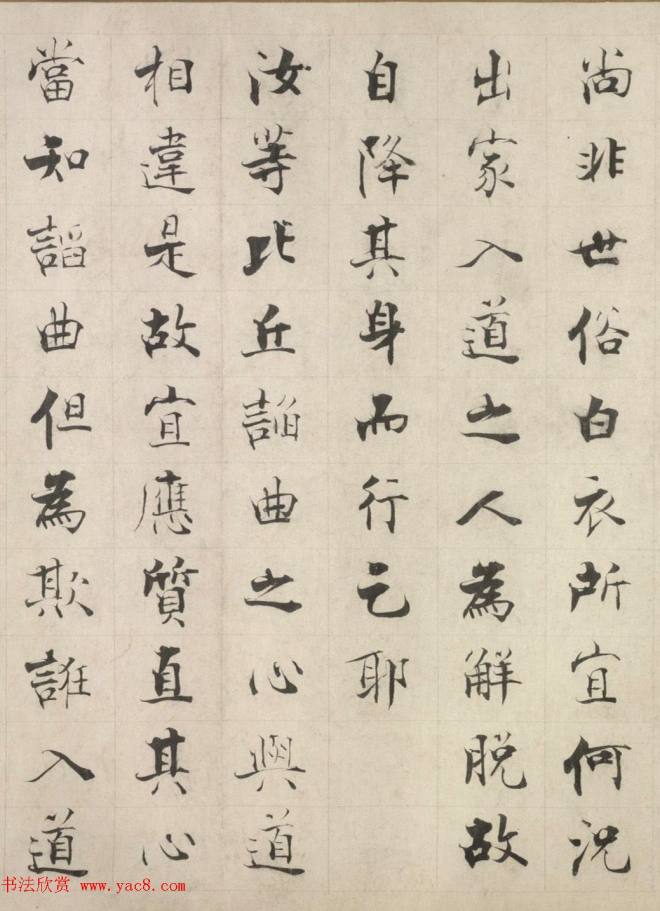 尚非世俗白衣所宜何況
出家入道之人為解脫故
自降其身而行乞耶
汝等比丘諂曲之心與道
相違是故宜應質直其心
當知諂曲但為欺誑入道
书法欣赏 www.yac8.com